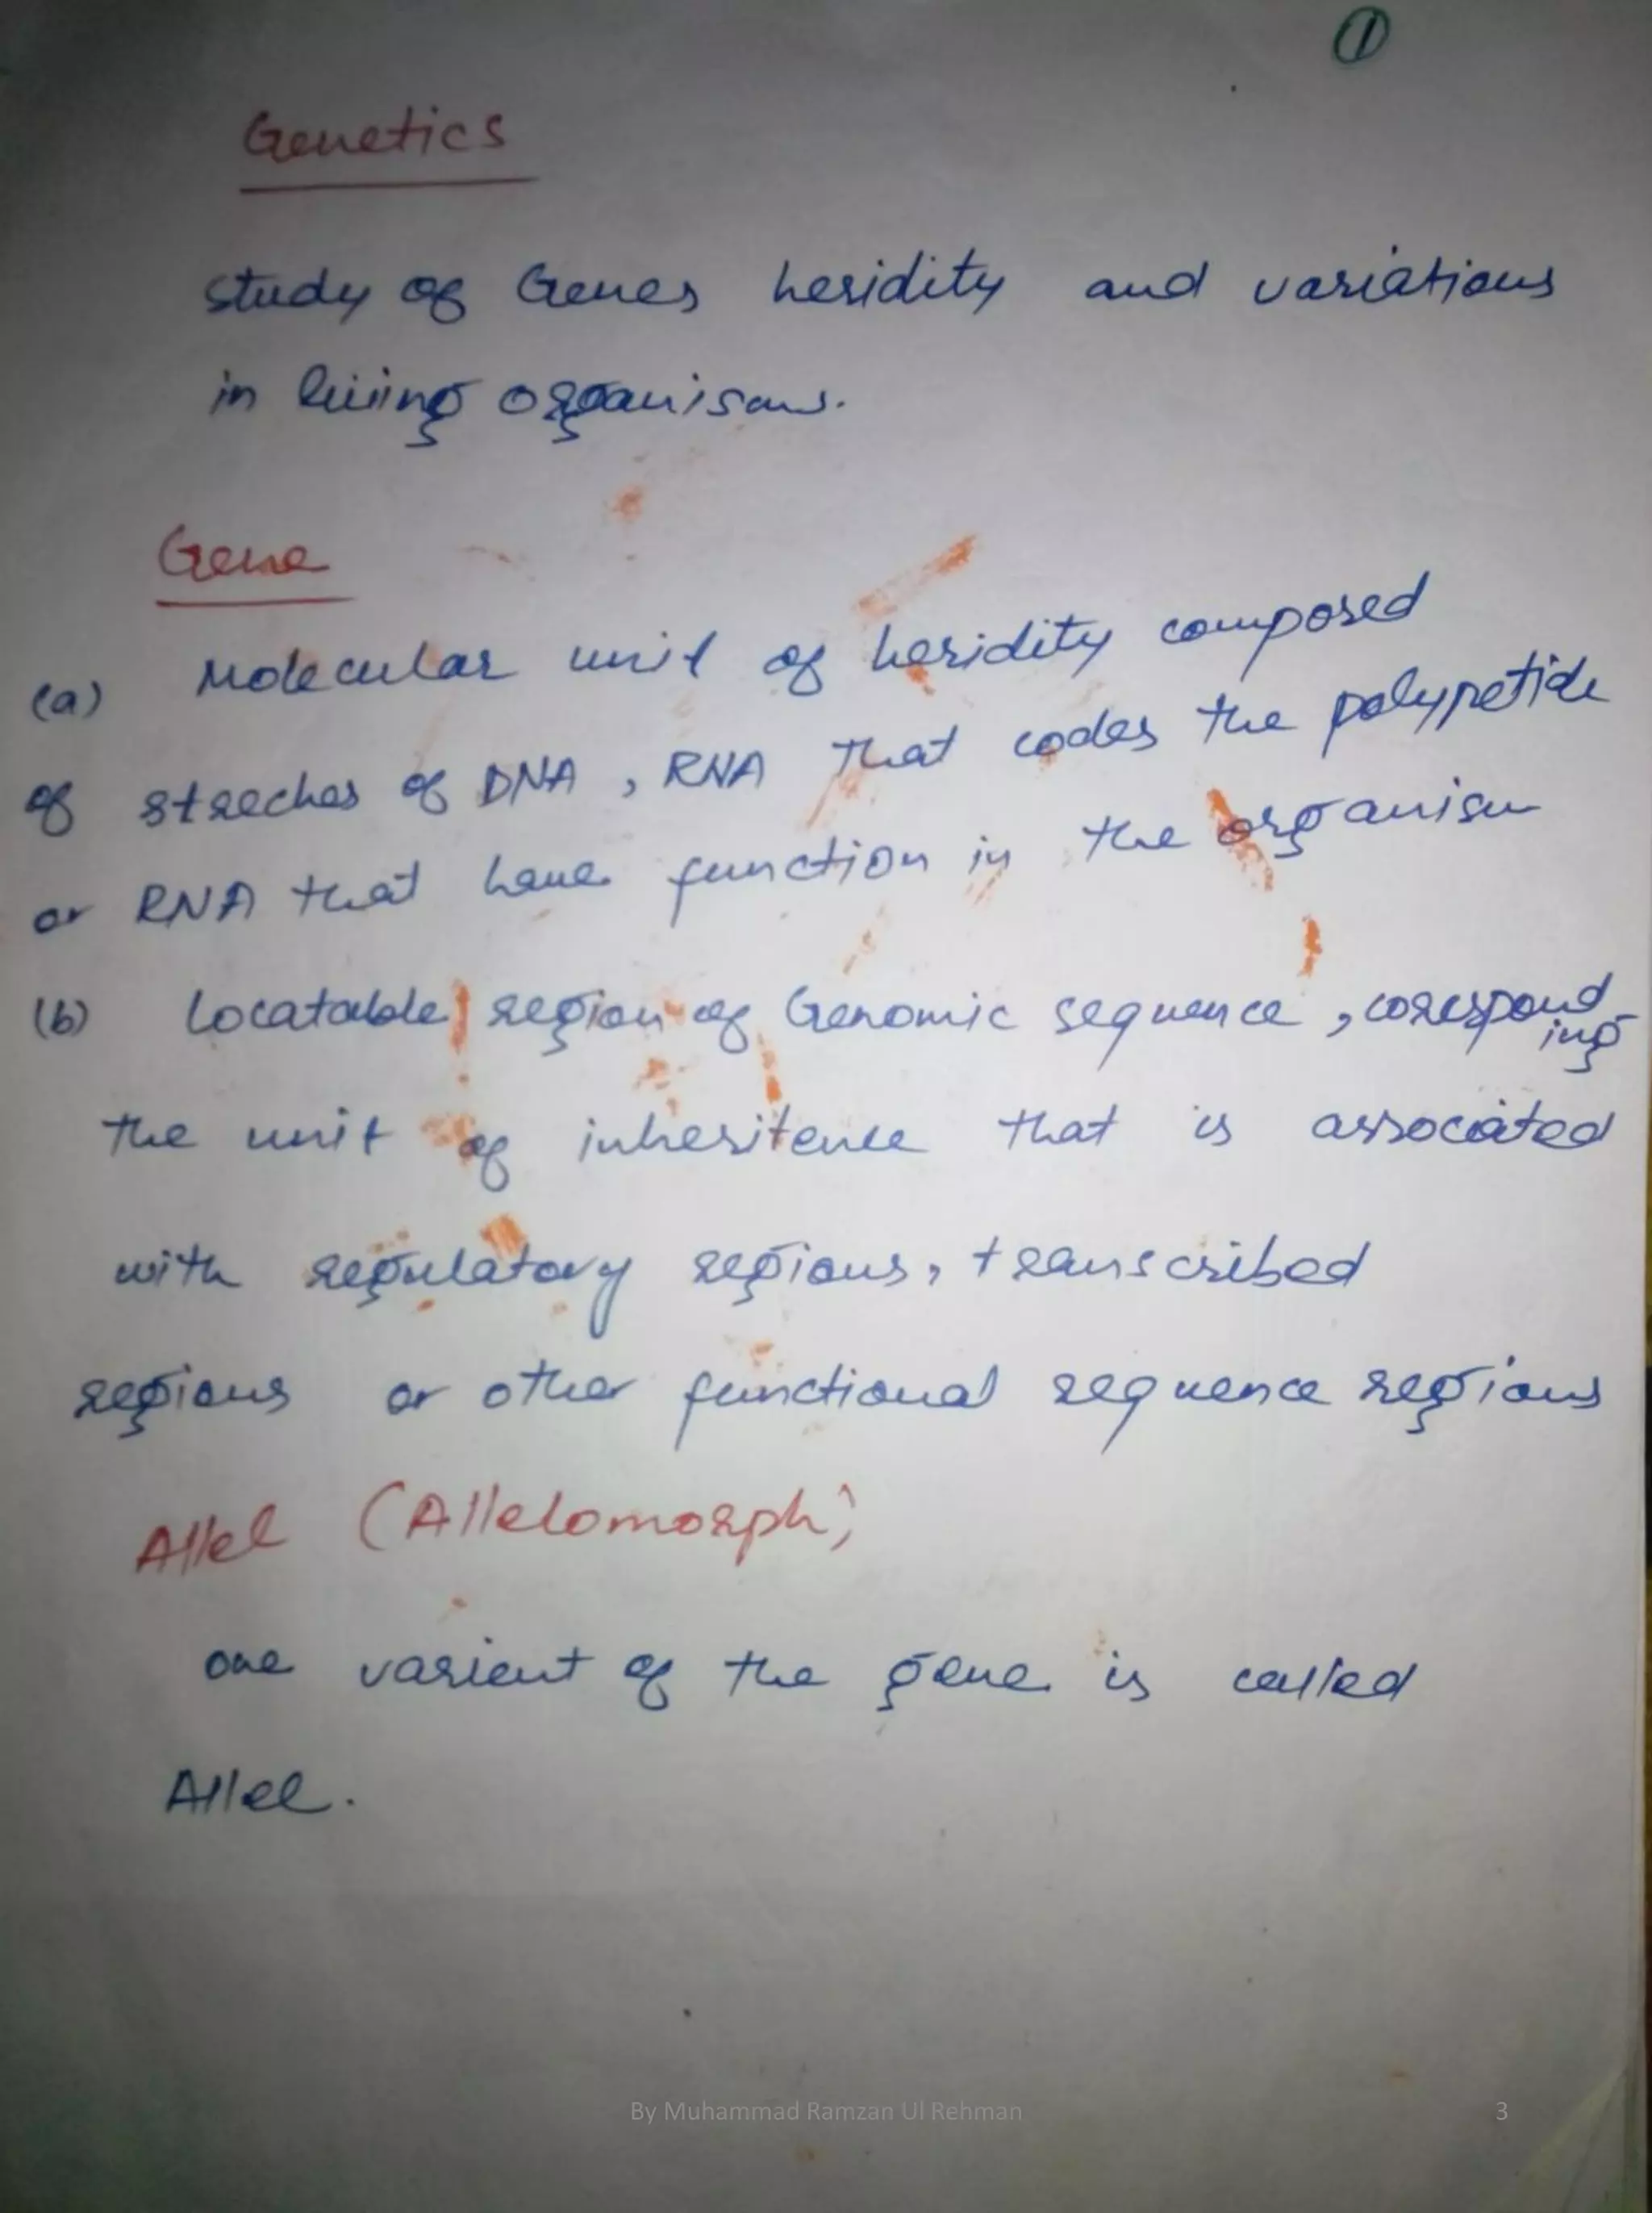 ①
Genetics
study of Genes heridity and variations
in living organisms.
Gene
(a) Molecular unit of heridity composed
of streches of DNA, RNA that codes the polypetide
or RNA that have function in the organism
(b) Locatable region of Genomic sequence, corespond
ing
the unit of inheritence that is associated
with regulatory regions, transcribed
regions or other functional sequence regions
Allel (Allelomorph)
one varient of the gene is called
Allel.
By Muhammad Ramzan Ul Rehman 3